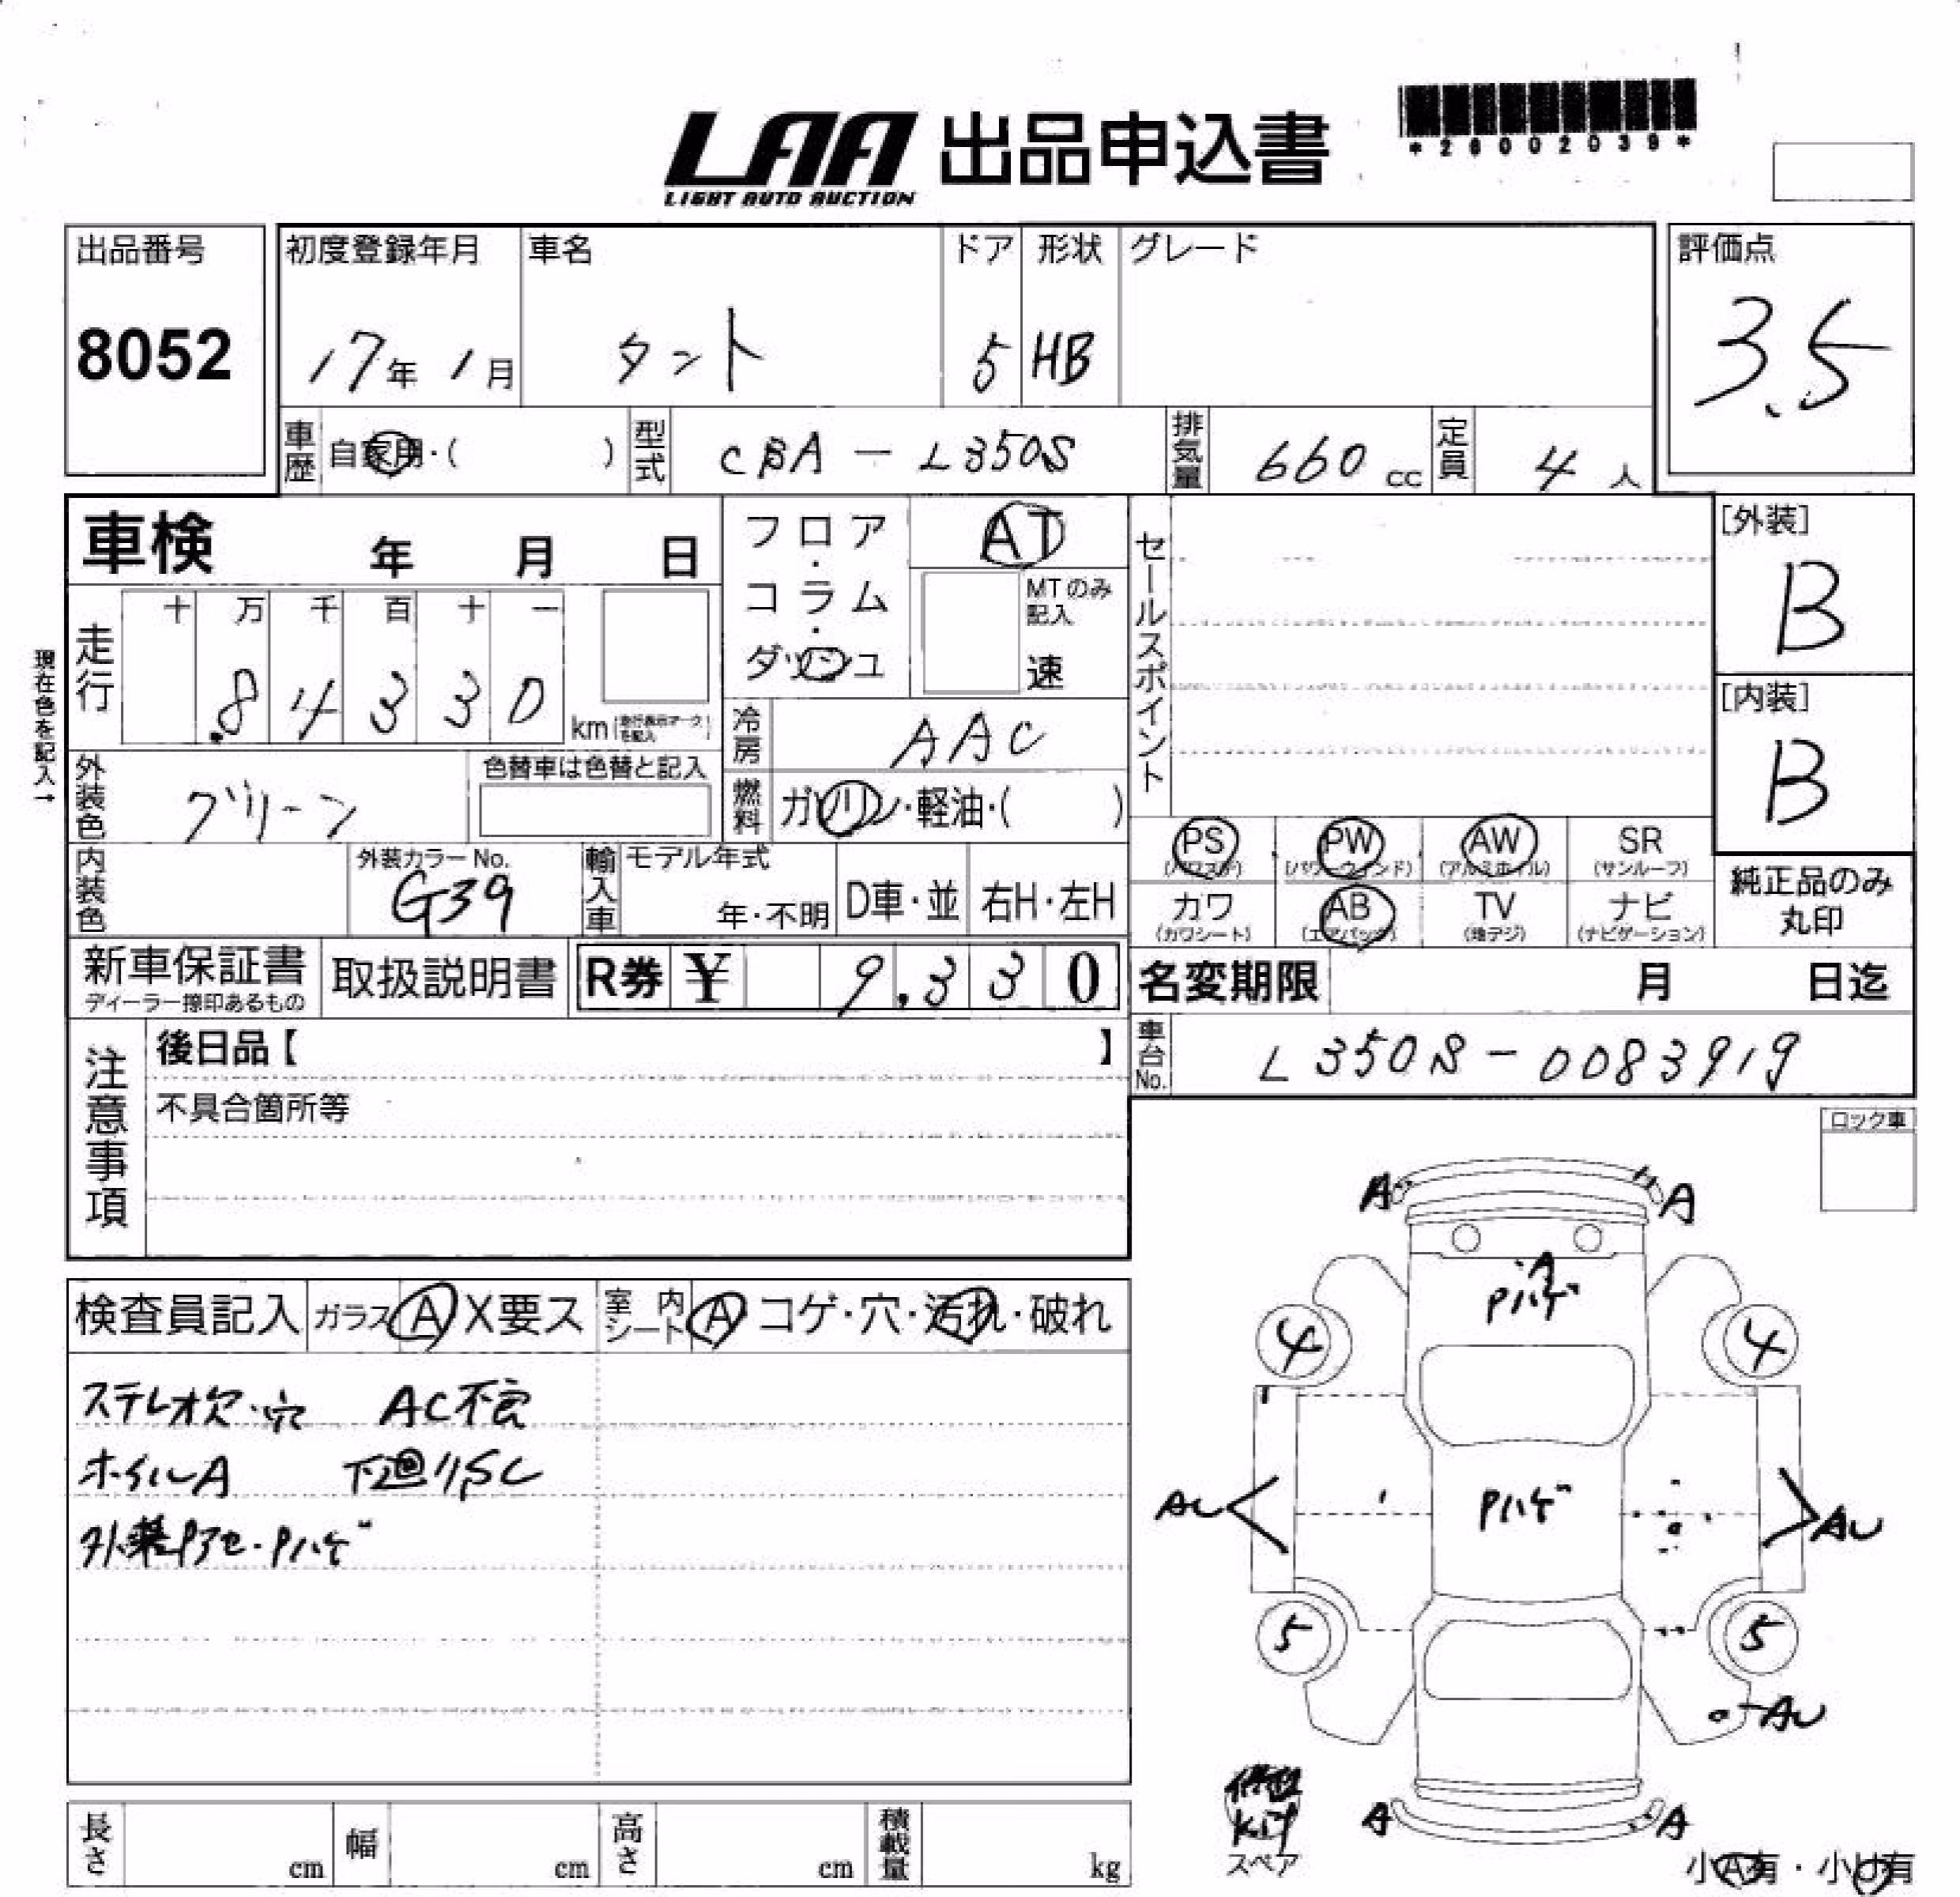 LAA 出品申込書
LIGHT AUTO AUCTION
*26002039*
出品番号 初度登録年月 車名 ドア 形状 グレード 評価点
8052 17年 1月 タント 5 HB 3.5
車歴 自家用・( ) 型式 CBA-L350S 排気量 660 cc 定員 4 人
車検 年 月 日
フロア・コラム・ダッシュ
AT
MTのみ記入
速
セールスポイント
[外装]
B
[内装]
B
現在色を記入→
走行 十 万 千 百 十 一
84330 km
冷房 AAC
外装色 グリーン 色替車は色替と記入
燃料 ガソリン・軽油・( )
PS (パワステ) PW (パワーウインド) AW (アルミホイル) SR (サンルーフ)
内装色 外装カラーNo. G39 輸入車 モデル年式 年・不明 D車・並 右H・左H
カワ (カワシート) AB (エアバッグ) TV (地デジ) ナビ (ナビゲーション)
純正品のみ丸印
新車保証書 取扱説明書 R券 ¥ 9,330
ディーラー捺印あるもの
名変期限 月 日迄
車台No. L350S-0083919
注意事項
後日品【 】
不具合箇所等
ロック車
検査員記入 ガラス A X要ス 室内シート A コゲ・穴・汚れ・破れ
ステレオ欠・穴 AC不良
ホイルA 下廻りSC
外装Pアセ・Pハゲ
A A
A
Pハゲ
4 4
AU Pハゲ AU
5 5
AU
修理
kit
スペア
A A
小A有・小U有
長さ cm 幅 cm 高さ cm 積載量 kg